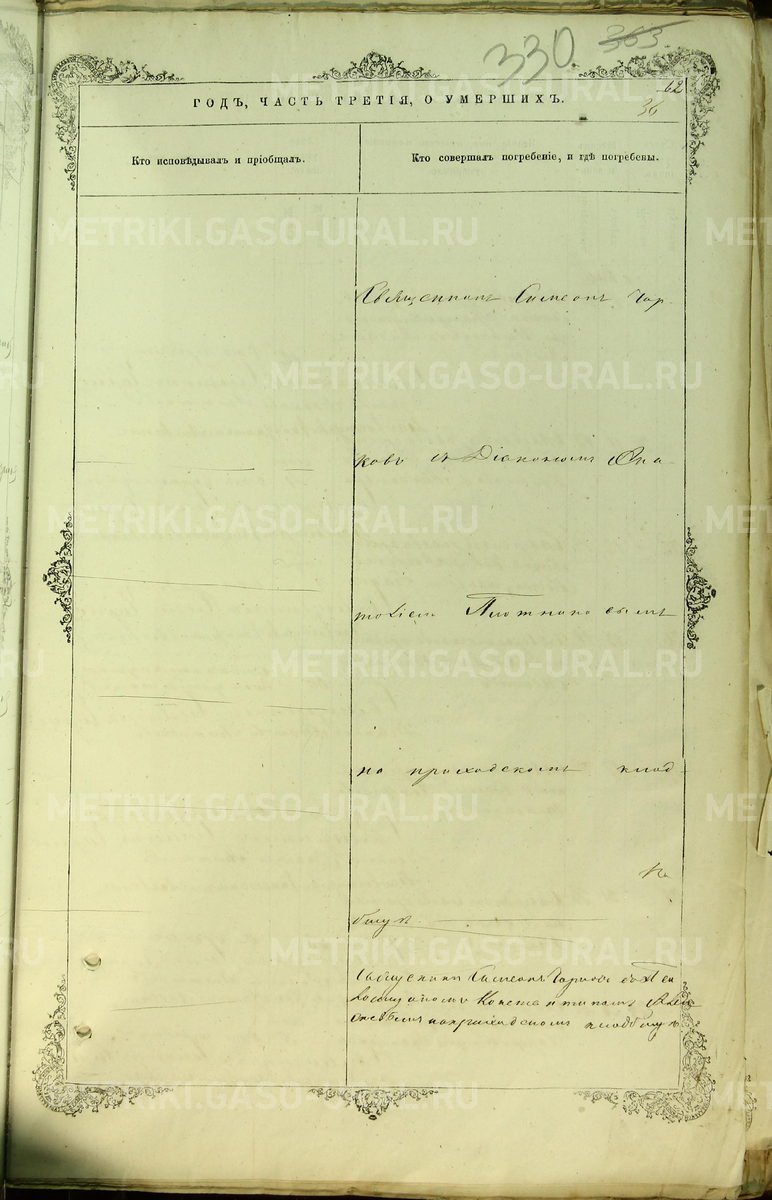 330. 363.
62
ГОДЪ, ЧАСТЬ ТРЕТІЯ, О УМЕРШИХЪ.
36
Кто исповѣдывалъ и пріобщалъ.
Кто совершалъ погребеніе, и гдѣ погребены.
Священникъ Симеонъ Чар-
ковъ съ Діакономъ Ѳеа
Плотниковымъ
на приходскомъ клад-
бищѣ.
Священникъ Симеонъ Чарковъ съ
на приходскомъ кладбищѣ
METRIKI.GASO-URAL.RU